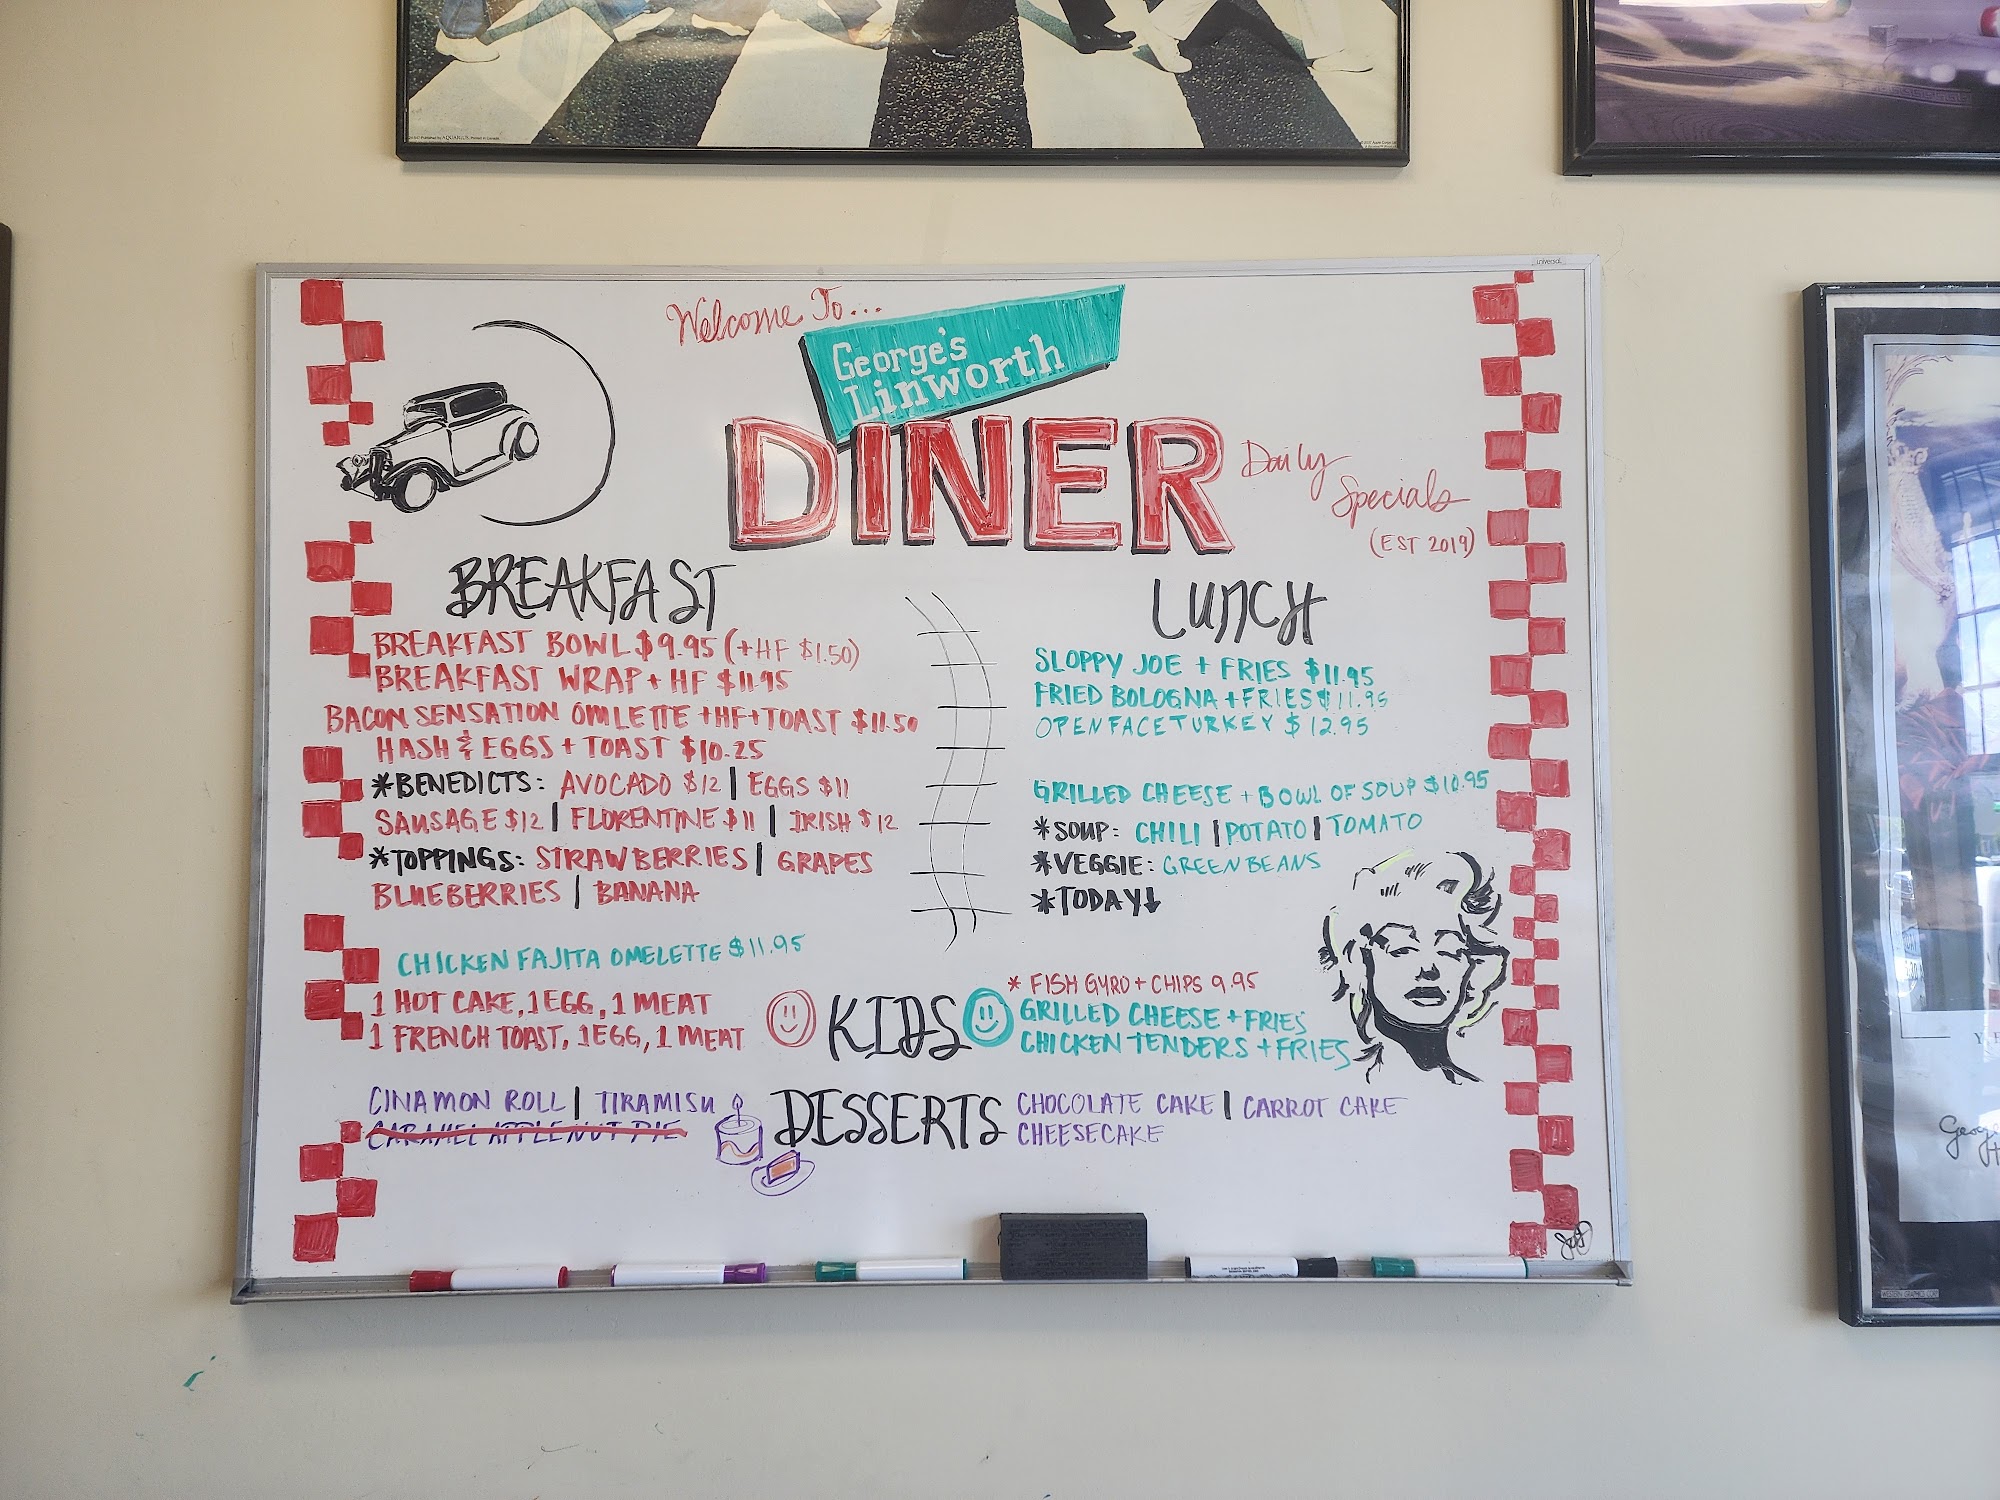 universal
Welcome To...
George's
Linworth
DINER
Daily
Specials
(EST 2019)
BREAKFAST
BREAKFAST BOWL $9.95 (+HF $1.50)
BREAKFAST WRAP + HF $11.95
BACON SENSATION OMLETTE +HF+TOAST $11.50
HASH & EGGS + TOAST $10.25
*BENEDICTS: AVOCADO $12 | EGGS $11
SAUSAGE $12 | FLORENTINE $11 | IRISH $12
*TOPPINGS: STRAWBERRIES | GRAPES
BLUEBERRIES | BANANA
CHICKEN FAJITA OMELETTE $11.95
LUNCH
SLOPPY JOE + FRIES $11.95
FRIED BOLOGNA + FRIES $11.95
OPEN FACE TURKEY $12.95
GRILLED CHEESE + BOWL OF SOUP $10.95
*SOUP: CHILI | POTATO | TOMATO
*VEGGIE: GREEN BEANS
*TODAY↓
* FISH GYRO + CHIPS 9.95
KIDS
1 HOT CAKE, 1 EGG, 1 MEAT
1 FRENCH TOAST, 1 EGG, 1 MEAT
GRILLED CHEESE + FRIES
CHICKEN TENDERS + FRIES
DESSERTS
CINAMON ROLL | TIRAMISU
CARAMEL APPLE NUT PIE
CHOCOLATE CAKE | CARROT CAKE
CHEESECAKE